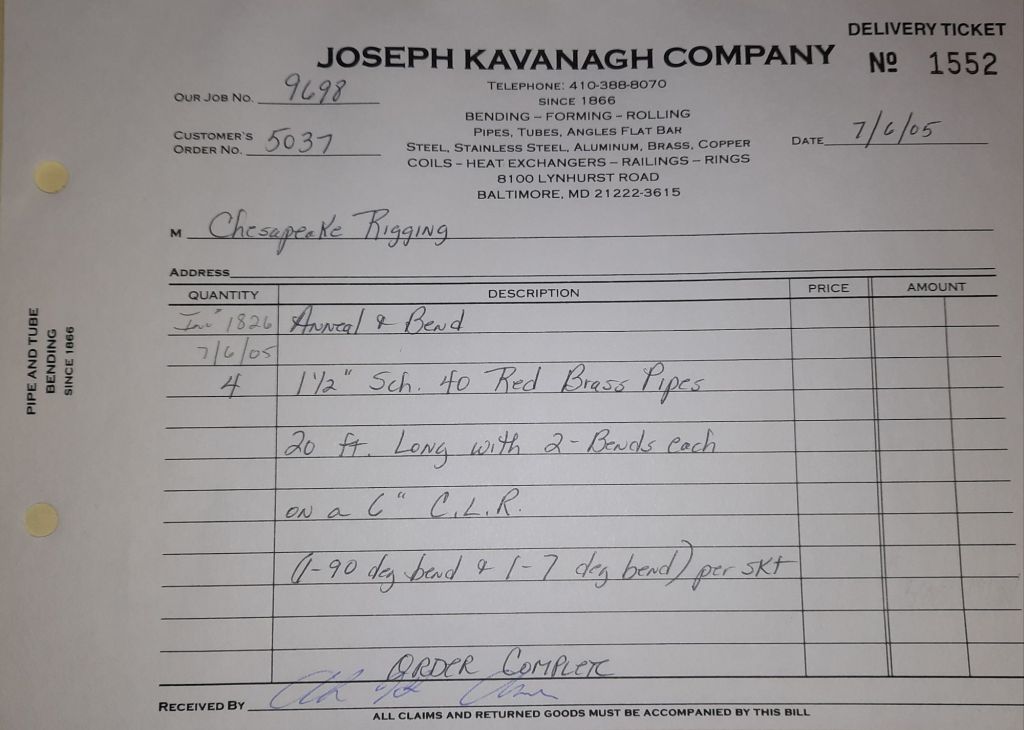 DELIVERY TICKET
JOSEPH KAVANAGH COMPANY
Nº 1552
TELEPHONE: 410-388-8070
OUR JOB NO. 9698
SINCE 1866
BENDING – FORMING – ROLLING
PIPES, TUBES, ANGLES FLAT BAR
CUSTOMER'S
ORDER NO. 5037
STEEL, STAINLESS STEEL, ALUMINUM, BRASS, COPPER
DATE 7/6/05
COILS – HEAT EXCHANGERS – RAILINGS – RINGS
8100 LYNHURST ROAD
BALTIMORE, MD 21222-3615
M Chesapeake Rigging
ADDRESS
QUANTITY DESCRIPTION PRICE AMOUNT
Inv# 1826 Anneal & Bend
7/6/05
4 1½" Sch. 40 Red Brass Pipes
20 ft. Long with 2-Bends each
on a 6" C.L.R.
(1-90 deg bend & 1-7 deg bend) per skt
ORDER COMPLETE
RECEIVED BY
ALL CLAIMS AND RETURNED GOODS MUST BE ACCOMPANIED BY THIS BILL
PIPE AND TUBE
BENDING
SINCE 1866